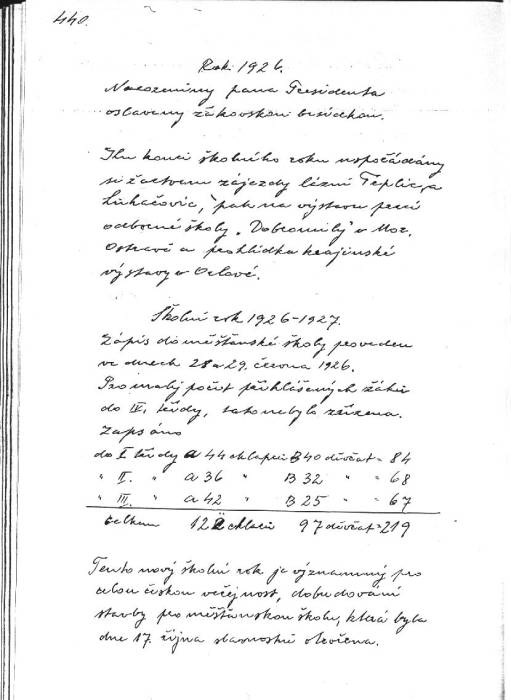 440.
Rok 1926.
Narozeniny pana Presidenta
oslaveny žákovskou besídkou.
Ku konci školního roku uspořádány
se žactvem zájezdy lázní Teplic, a
Luhačovic, pak na výstavu prací
odborné školy „Dobromily" v Mor.
Ostravě a prohlídka krajinské
výstavy v Orlové.
Školní rok 1926-1927.
Zápis do měšťanské školy proveden
ve dnech 28 a 29. června 1926.
Pro malý počet přihlášených žáků
do IV. třídy, tato nebyla zřízena.
Zapsáno
do I třídy A 44 chlapců B 40 děvčat = 84
" II. " A 36 " B 32 " = 68
" III. " A 42 " B 25 " = 67
Celkem 122 chlapců 97 děvčat = 219
Tento nový školní rok je významný pro
celou českou veřejnost, dobudování
stavby pro měšťanskou školu, která byla
dne 17. října slavnostně otevřena.